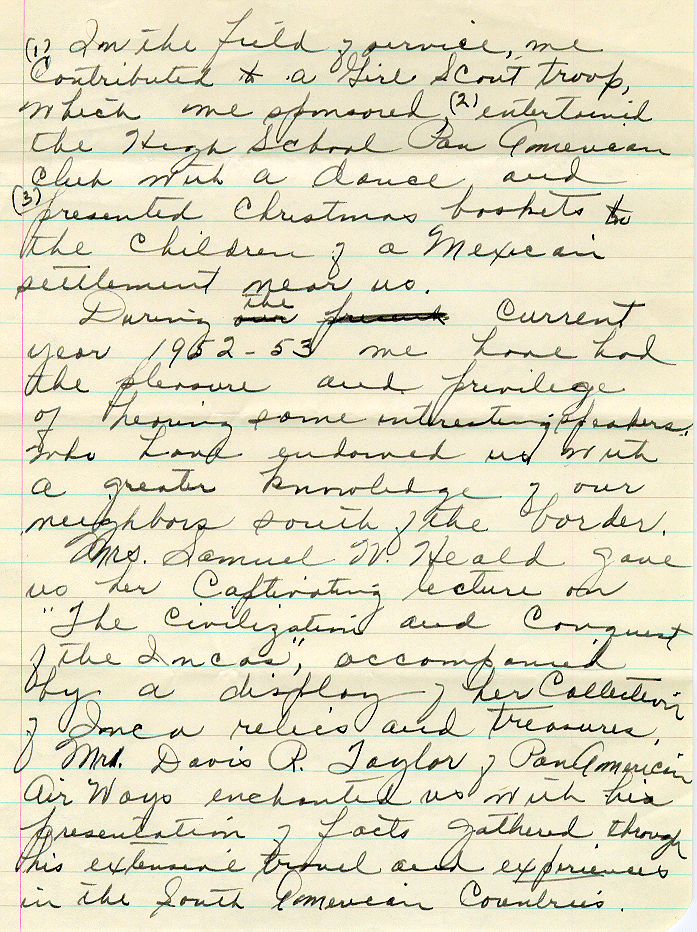 (1) In the field of service, we
Contributed to a Girl Scout troop,
which we sponsored, (2) entertained
the High School Pan American
Club with a dance and
(3) presented Christmas baskets to
the children of a Mexican
settlement near us.
During our the present current
year 1952-53 we have had
the pleasure and privilege
of hearing some interesting speakers,
who have endowed us with
a greater knowledge of our
neighbors south of the border.
Mrs. Samuel W. Heald gave
us her Captivating lecture on
"The Civilization and Conquest
of the Incas", accompanied
by a display of her Collection
of Inca relics and treasures.
Mr. Davis R. Taylor of Pan American
Air Ways enchanted us with his
presentation of facts gathered through
his extensive travel and experiences
in the South American Countries.